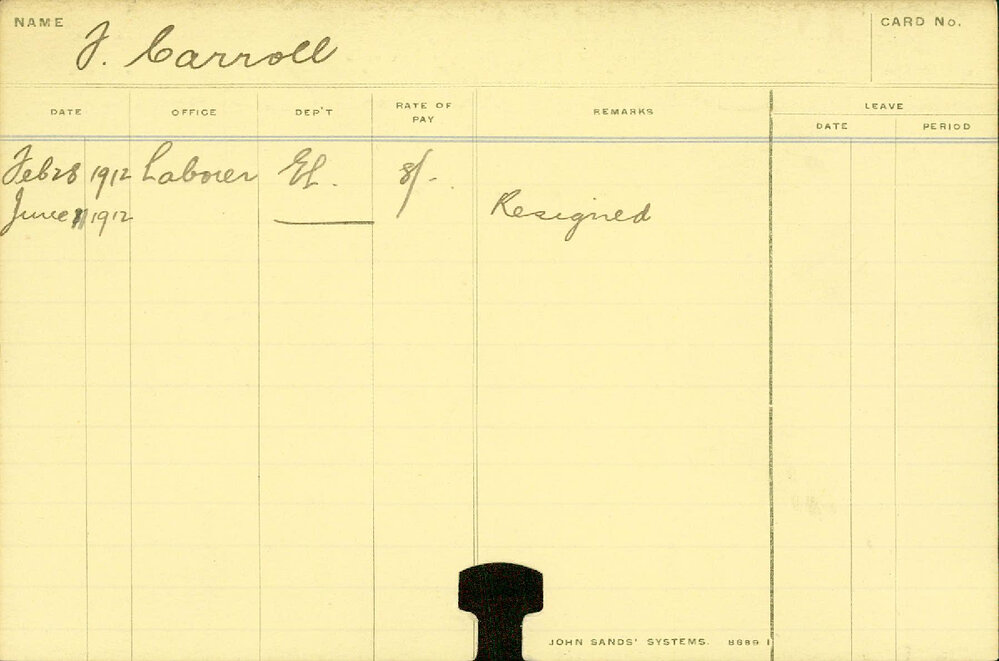 NAME
CARD No.
Carroll
DATE OFFICE DEP'T RATE OF PAY REMARKS LEAVE
DATE PERIOD
Feb 28 1912 Laborer El. 8/-.
June 1912 Resigned
JOHN SANDS' SYSTEMS. 8689